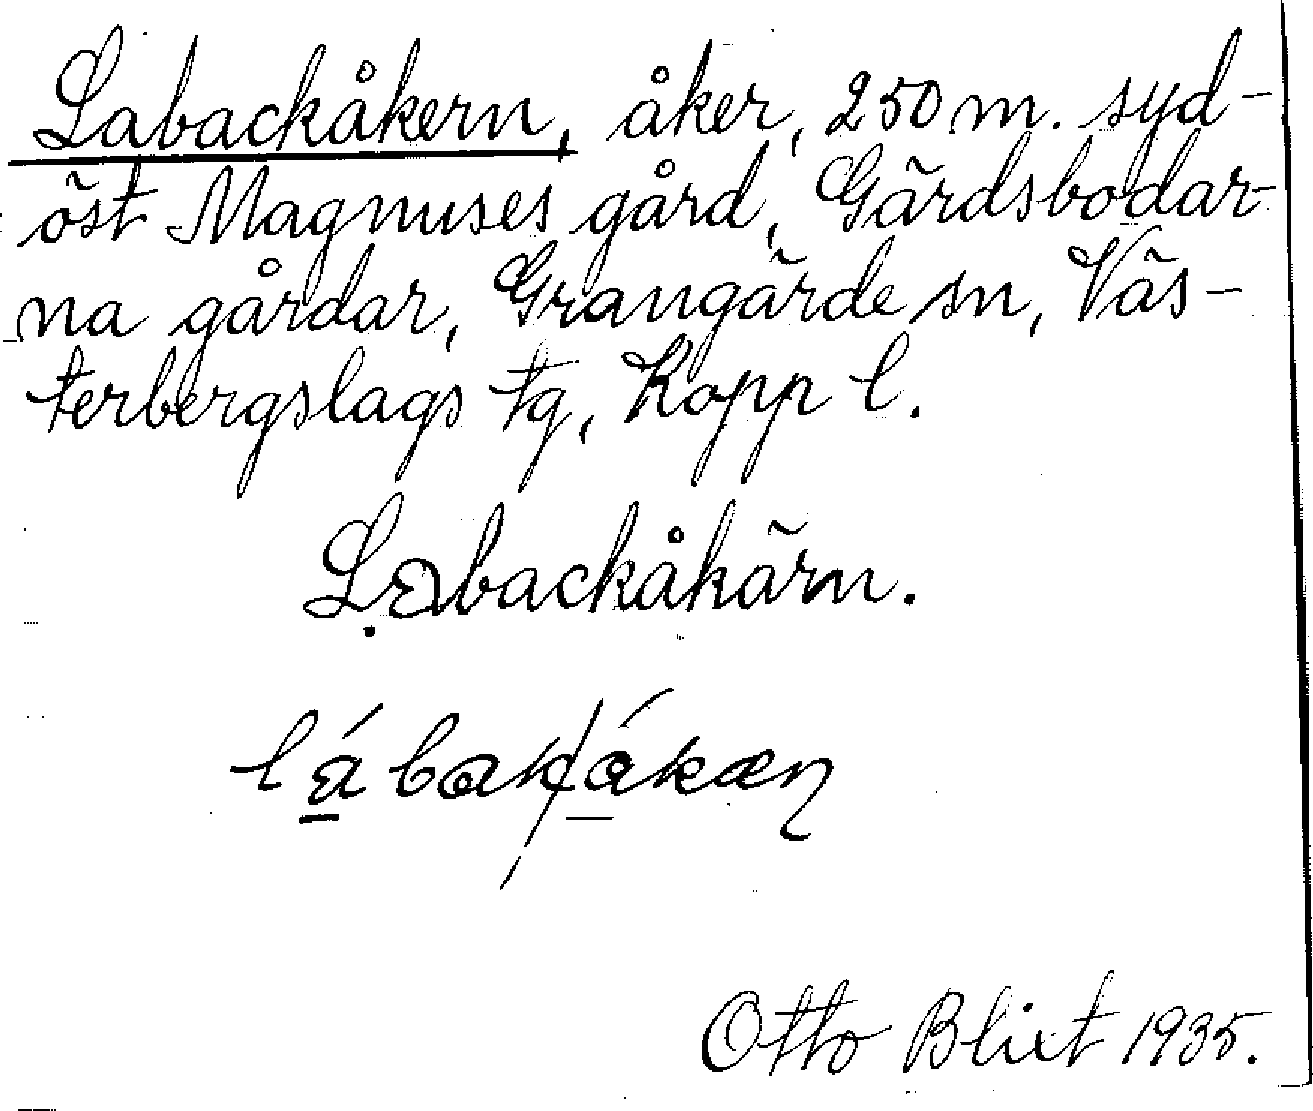 Labackåkern, åker, 250 m. syd-
öst Magnuses gård, Gärdsbodar-
na gårdar, Grangärde sn, Väs-
terbergslags tg, Kopp l.
Labackåkärn.
Otto Blixt 1935.